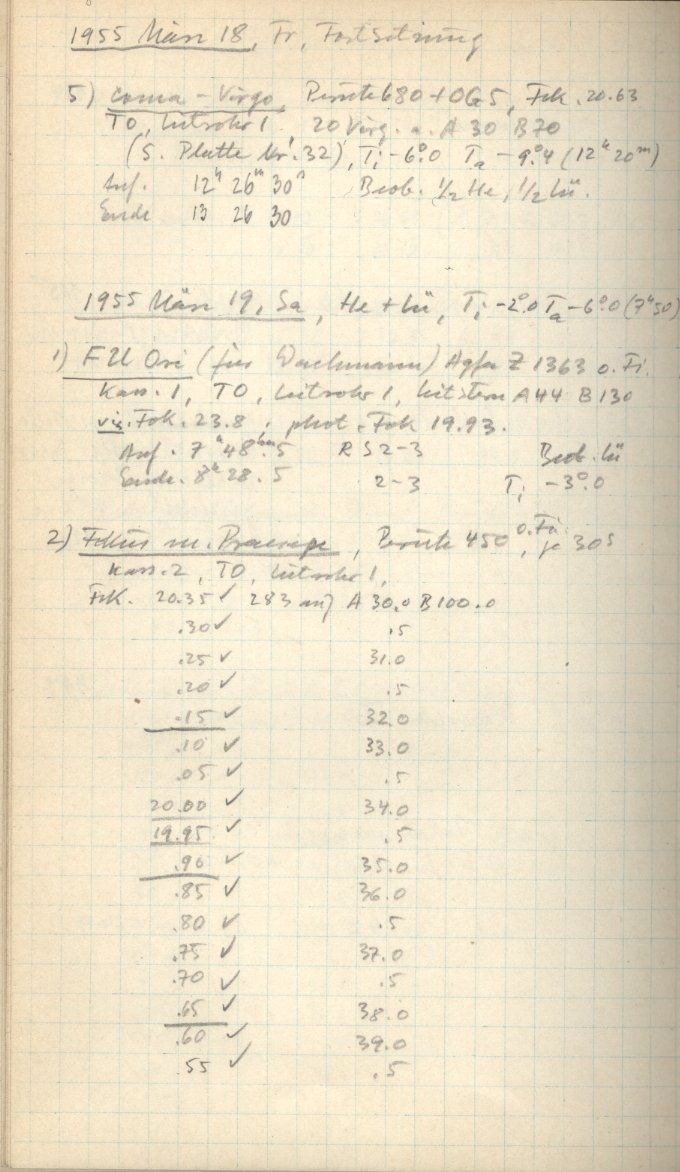 1955 März 18, Fr, Fortsetzung
5) Coma - Virgo, Perutz 680 + OG5, Fok. 20.63
TO, Leitrohr 1 20 Virg. a. A 30 B 70
(S. Platte Nr. 32), Ti -6°.0 Ta -9°.4 (12h 20m)
Anf. 12h 26m 30s Beob. 1/2 He, 1/2 Lü.
Ende 13 26 30
1955 März 19, Sa, He + Lü, Ti -2°.0 Ta -6°.0 (7h 50)
1) FU Ori (für Wachmann) Agfa Z 1363 o. Fi.
Kass. 1, TO, Leitrohr 1, Leitstern A 44 B 130
vis. Fok. 23.8, phot. Fok 19.93.
Anf. 7h 48m.5 R S 2-3 Beob. Lü
Ende. 8h 28.5 2-3 Ti -3°.0
2) Fokus m. Praesepe, Perutz 450 o. Fi., je 30s
Kass. 2, TO, Leitrohr 1,
Fok. 20.35 ✓ 283 auf A 30.0 B 100.0
.30 ✓ .5
.25 ✓ 31.0
.20 ✓ .5
.15 ✓ 32.0
.10 ✓ 33.0
.05 ✓ .5
20.00 ✓ 34.0
19.95 ✓ .5
.90 ✓ 35.0
.85 ✓ 36.0
.80 ✓ .5
.75 ✓ 37.0
.70 ✓ .5
.65 ✓ 38.0
.60 ✓ 39.0
.55 ✓ .5